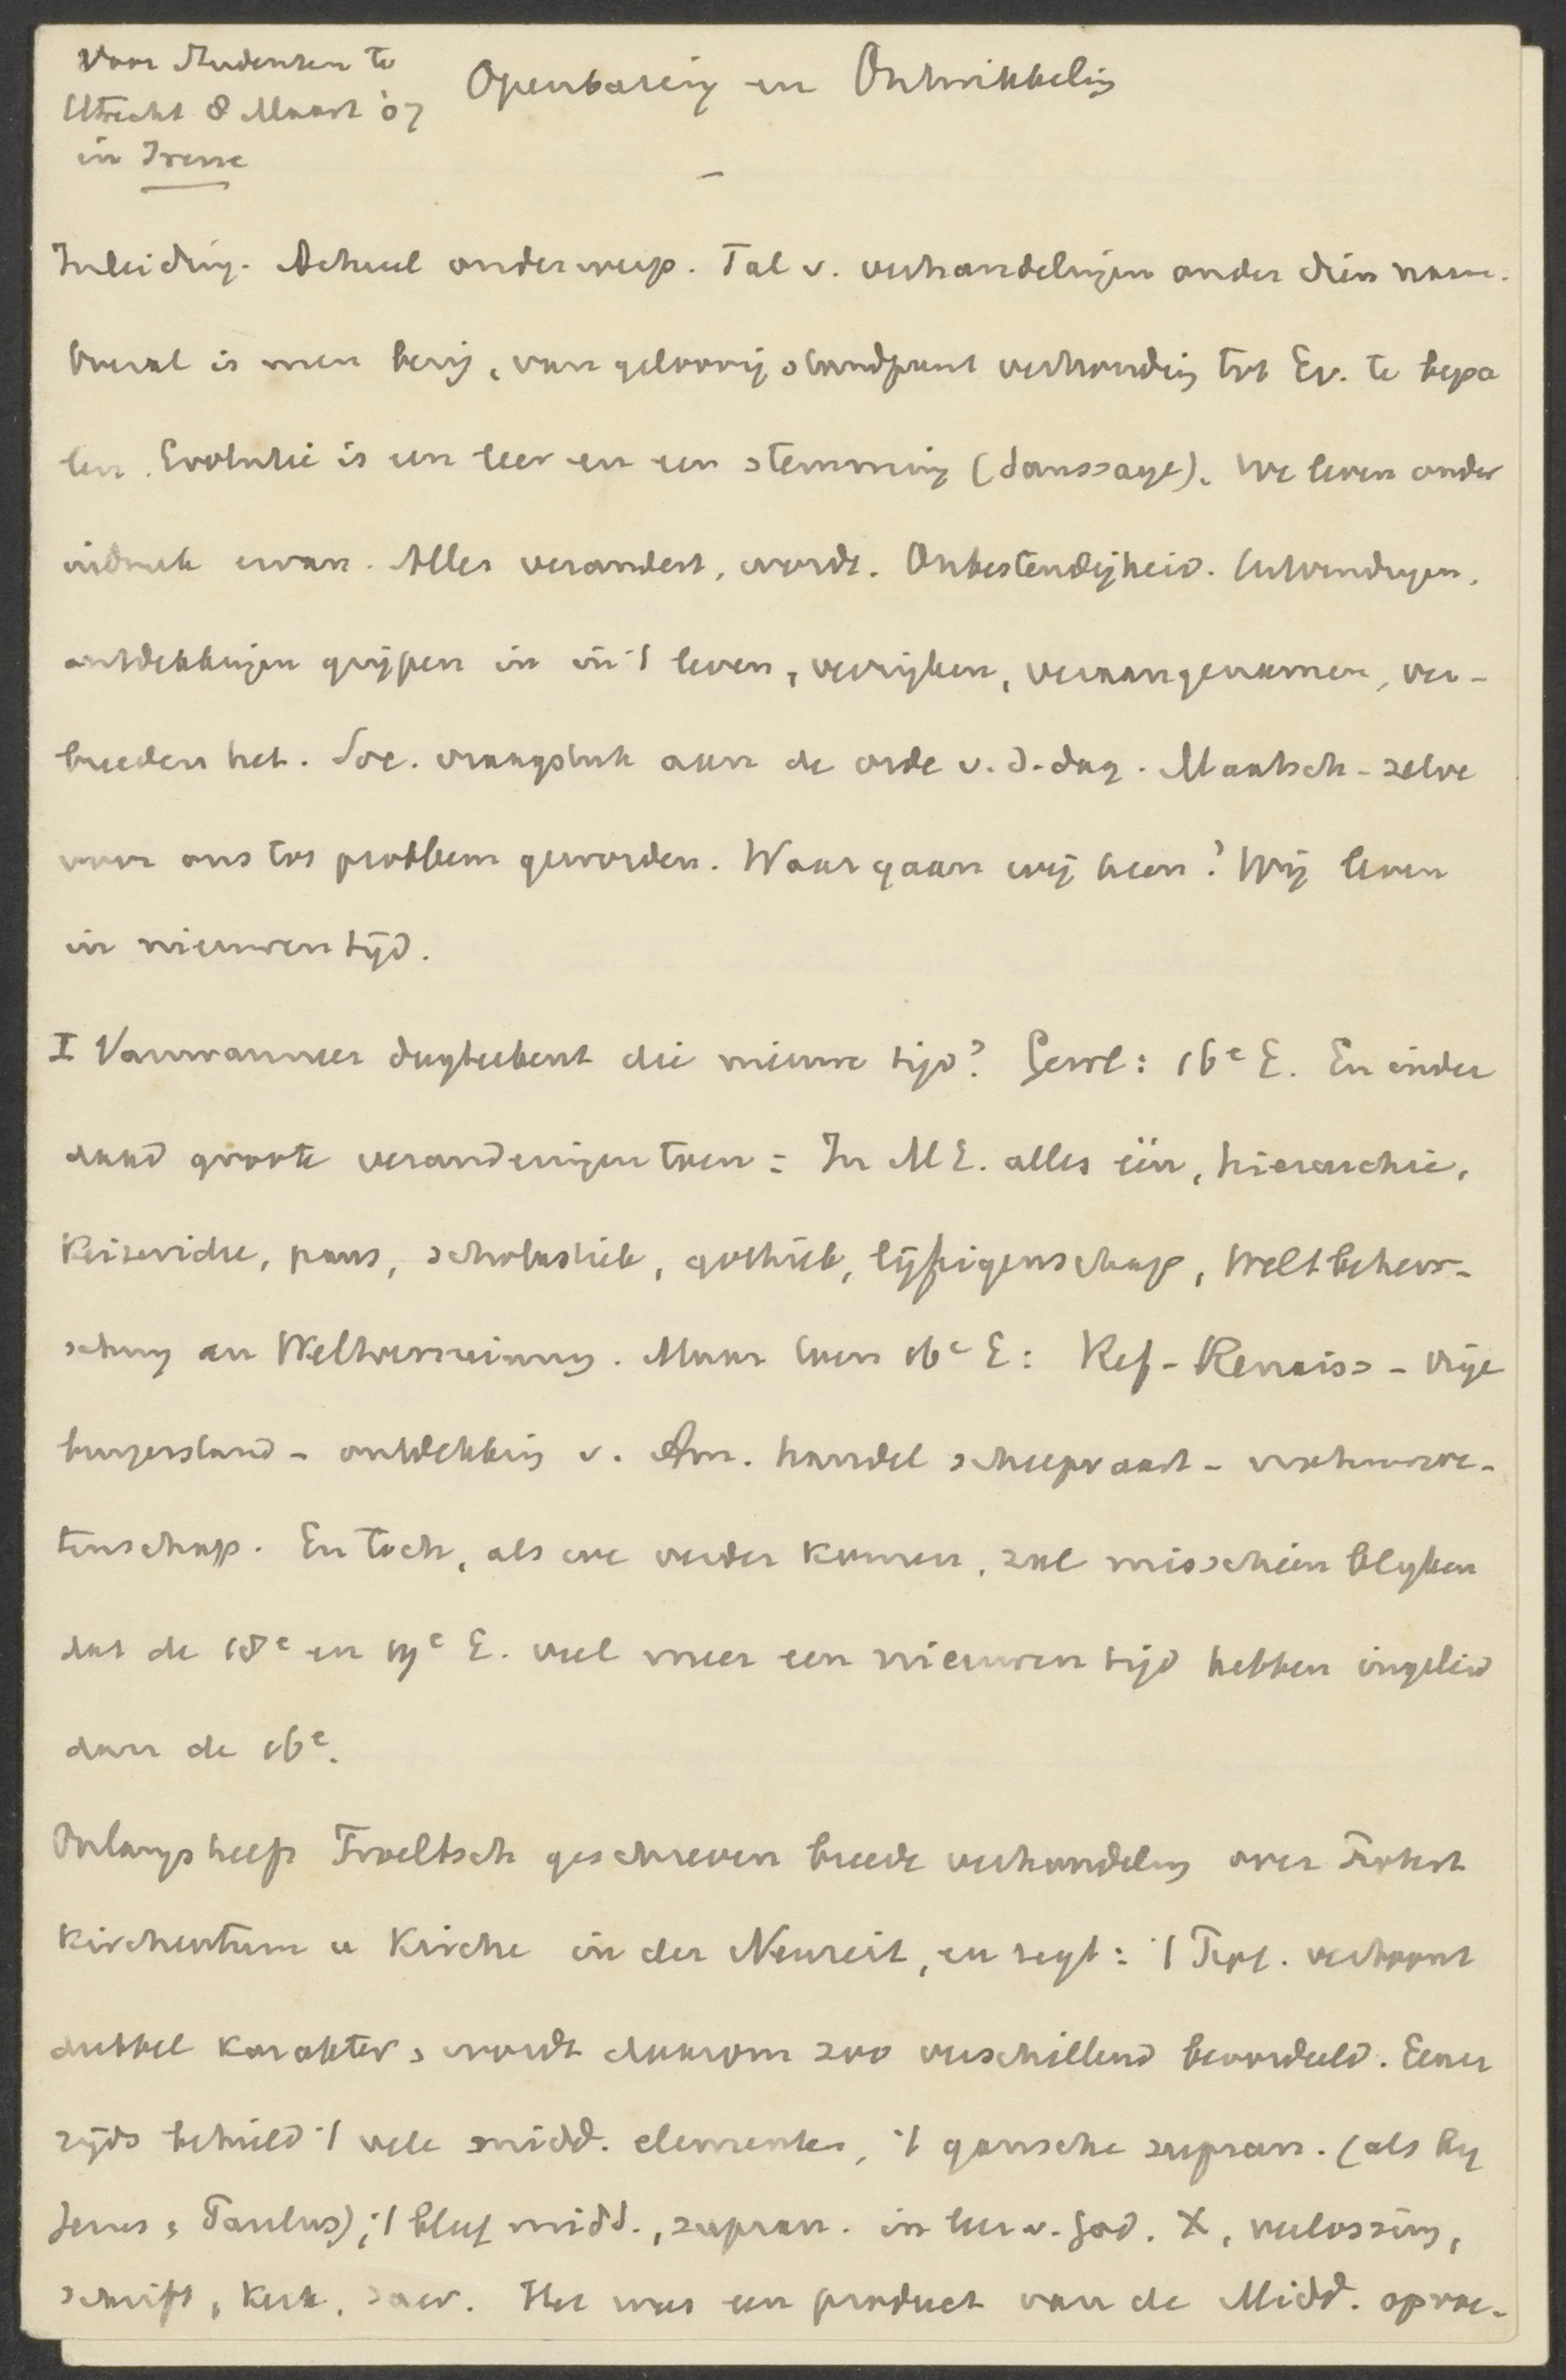 Voor Studenten te
Utrecht 8 Maart '07
in Irene
Openbaring en Ontwikkeling
Inleiding. Actueel onderwerp. Tal v. verhandelingen onder dien naam.
Overal is men bezig, van geloovig standpunt verhouding tot Ev. te bepa
len. Evolutie is een leer en een stemming (danssage). We leven onder
indruk ervan. Alles verandert, wordt. Onbestendigheid. Uitvindingen,
ontdekkingen grijpen in in 't leven, verrijken, veraangenamen, ver-
breeden het. Soc. vraagstuk aan de orde v. d. dag. Maatsch. zelve
voor ons tot probleem geworden. Waar gaan wij heen? Wij leven
in nieuwen tijd.
I Vanwanneer dagteekent die nieuwe tijd? Gewl: 16e E. En inder
daad groote veranderingen toen: In M E. alles één, hierarchie,
keizeridee, paus, scholastiek, gothiek, lijfeigenschap, Weltbeherr-
schung en Weltverneinung. Maar toen 16e E: Ref - Renaiss - vrije
burgerstand - ontdekking v. Am. handel scheepvaart - natuurwe-
tenschap. En toch, als we verder komen, zal misschien blijken
dat de 18e en 19e E. veel meer een nieuwen tijd hebben ingeleid
dan de 16e.
Onlangs heeft Troeltsch geschreven breede verhandeling over Protest
Kirchentum u Kirche in der Neuzeit, en zegt: 't Prot. vertoont
dubbel karakter, wordt daarom zoo verschillend beoordeeld. Eener
zijds behield 't vele midd. elementen, 't gansche supran. (als bij
Jezus, Paulus); 't bleef midd., supran. in leer v. God. X, verlossing,
schrift, kerk, sacr. Het was een product van de Midd. oproe-